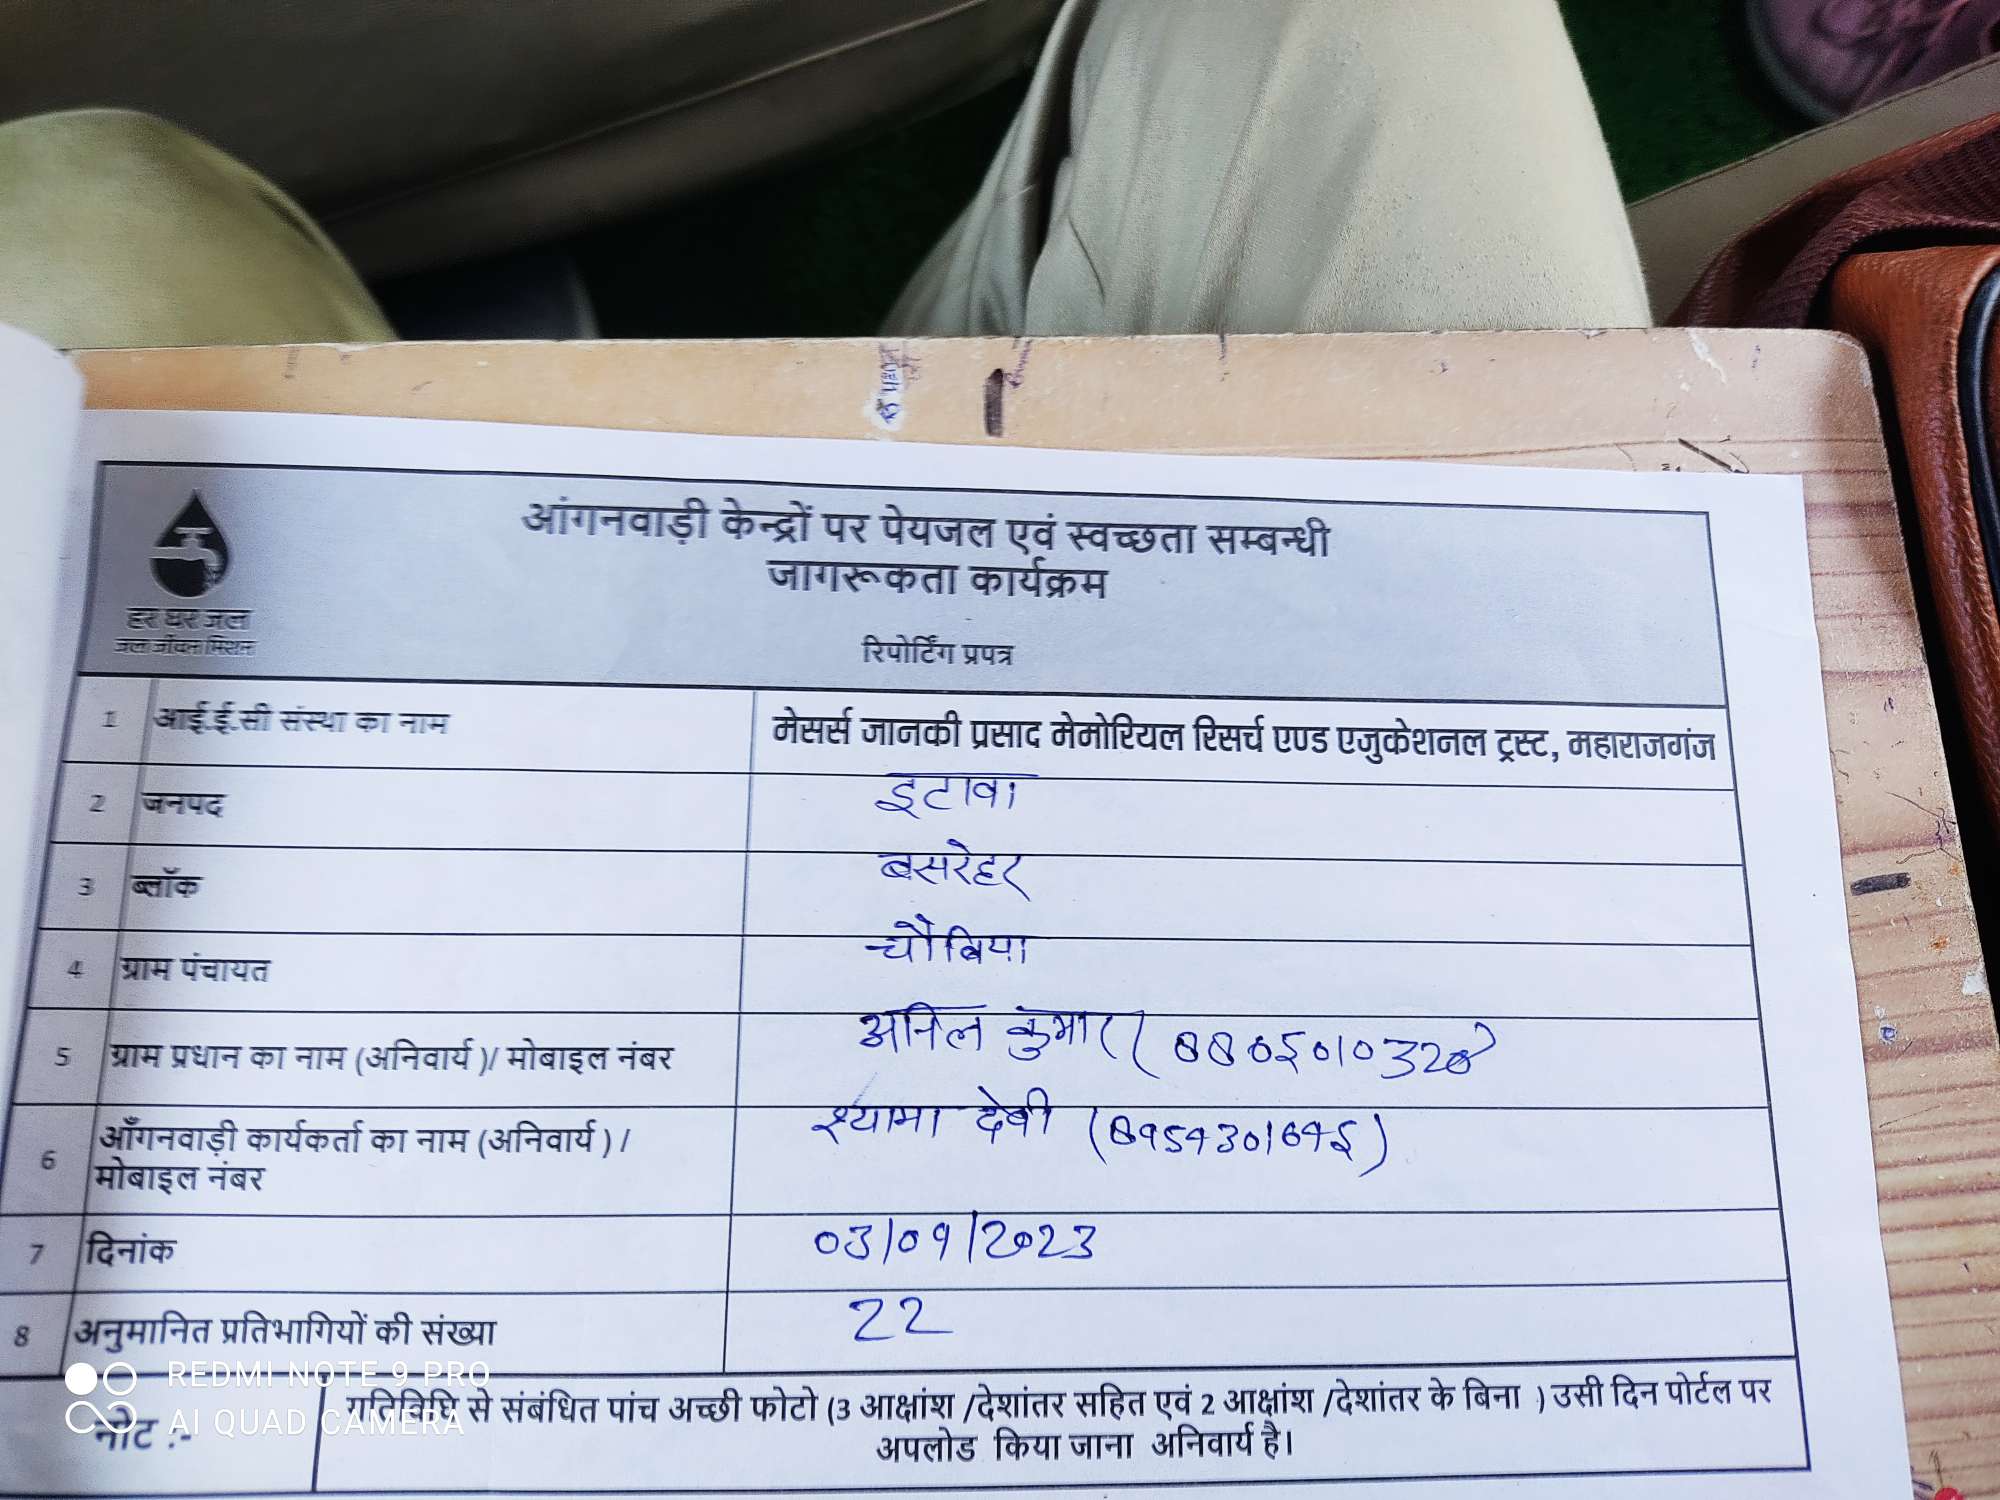 हर घर जल
जल जीवन मिशन
आंगनवाड़ी केन्द्रों पर पेयजल एवं स्वच्छता सम्बन्धी
जागरूकता कार्यक्रम
रिपोर्टिंग प्रपत्र
1 आई.ई.सी संस्था का नाम मेसर्स जानकी प्रसाद मेमोरियल रिसर्च एण्ड एजुकेशनल ट्रस्ट, महाराजगंज
2 जनपद इटावा
3 ब्लॉक बसरेहर
4 ग्राम पंचायत चौबिया
5 ग्राम प्रधान का नाम (अनिवार्य )/ मोबाइल नंबर अनिल कुमार
6 आँगनवाड़ी कार्यकर्ता का नाम (अनिवार्य ) /
मोबाइल नंबर श्यामा देवी
7 दिनांक 03/09/2023
8 अनुमानित प्रतिभागियों की संख्या 22
नोट :- गतिविधि से संबंधित पांच अच्छी फोटो (3 आक्षांश /देशांतर सहित एवं 2 आक्षांश /देशांतर के बिना ) उसी दिन पोर्टल पर
अपलोड किया जाना अनिवार्य है।
REDMI NOTE 9 PRO
AI QUAD CAMERA